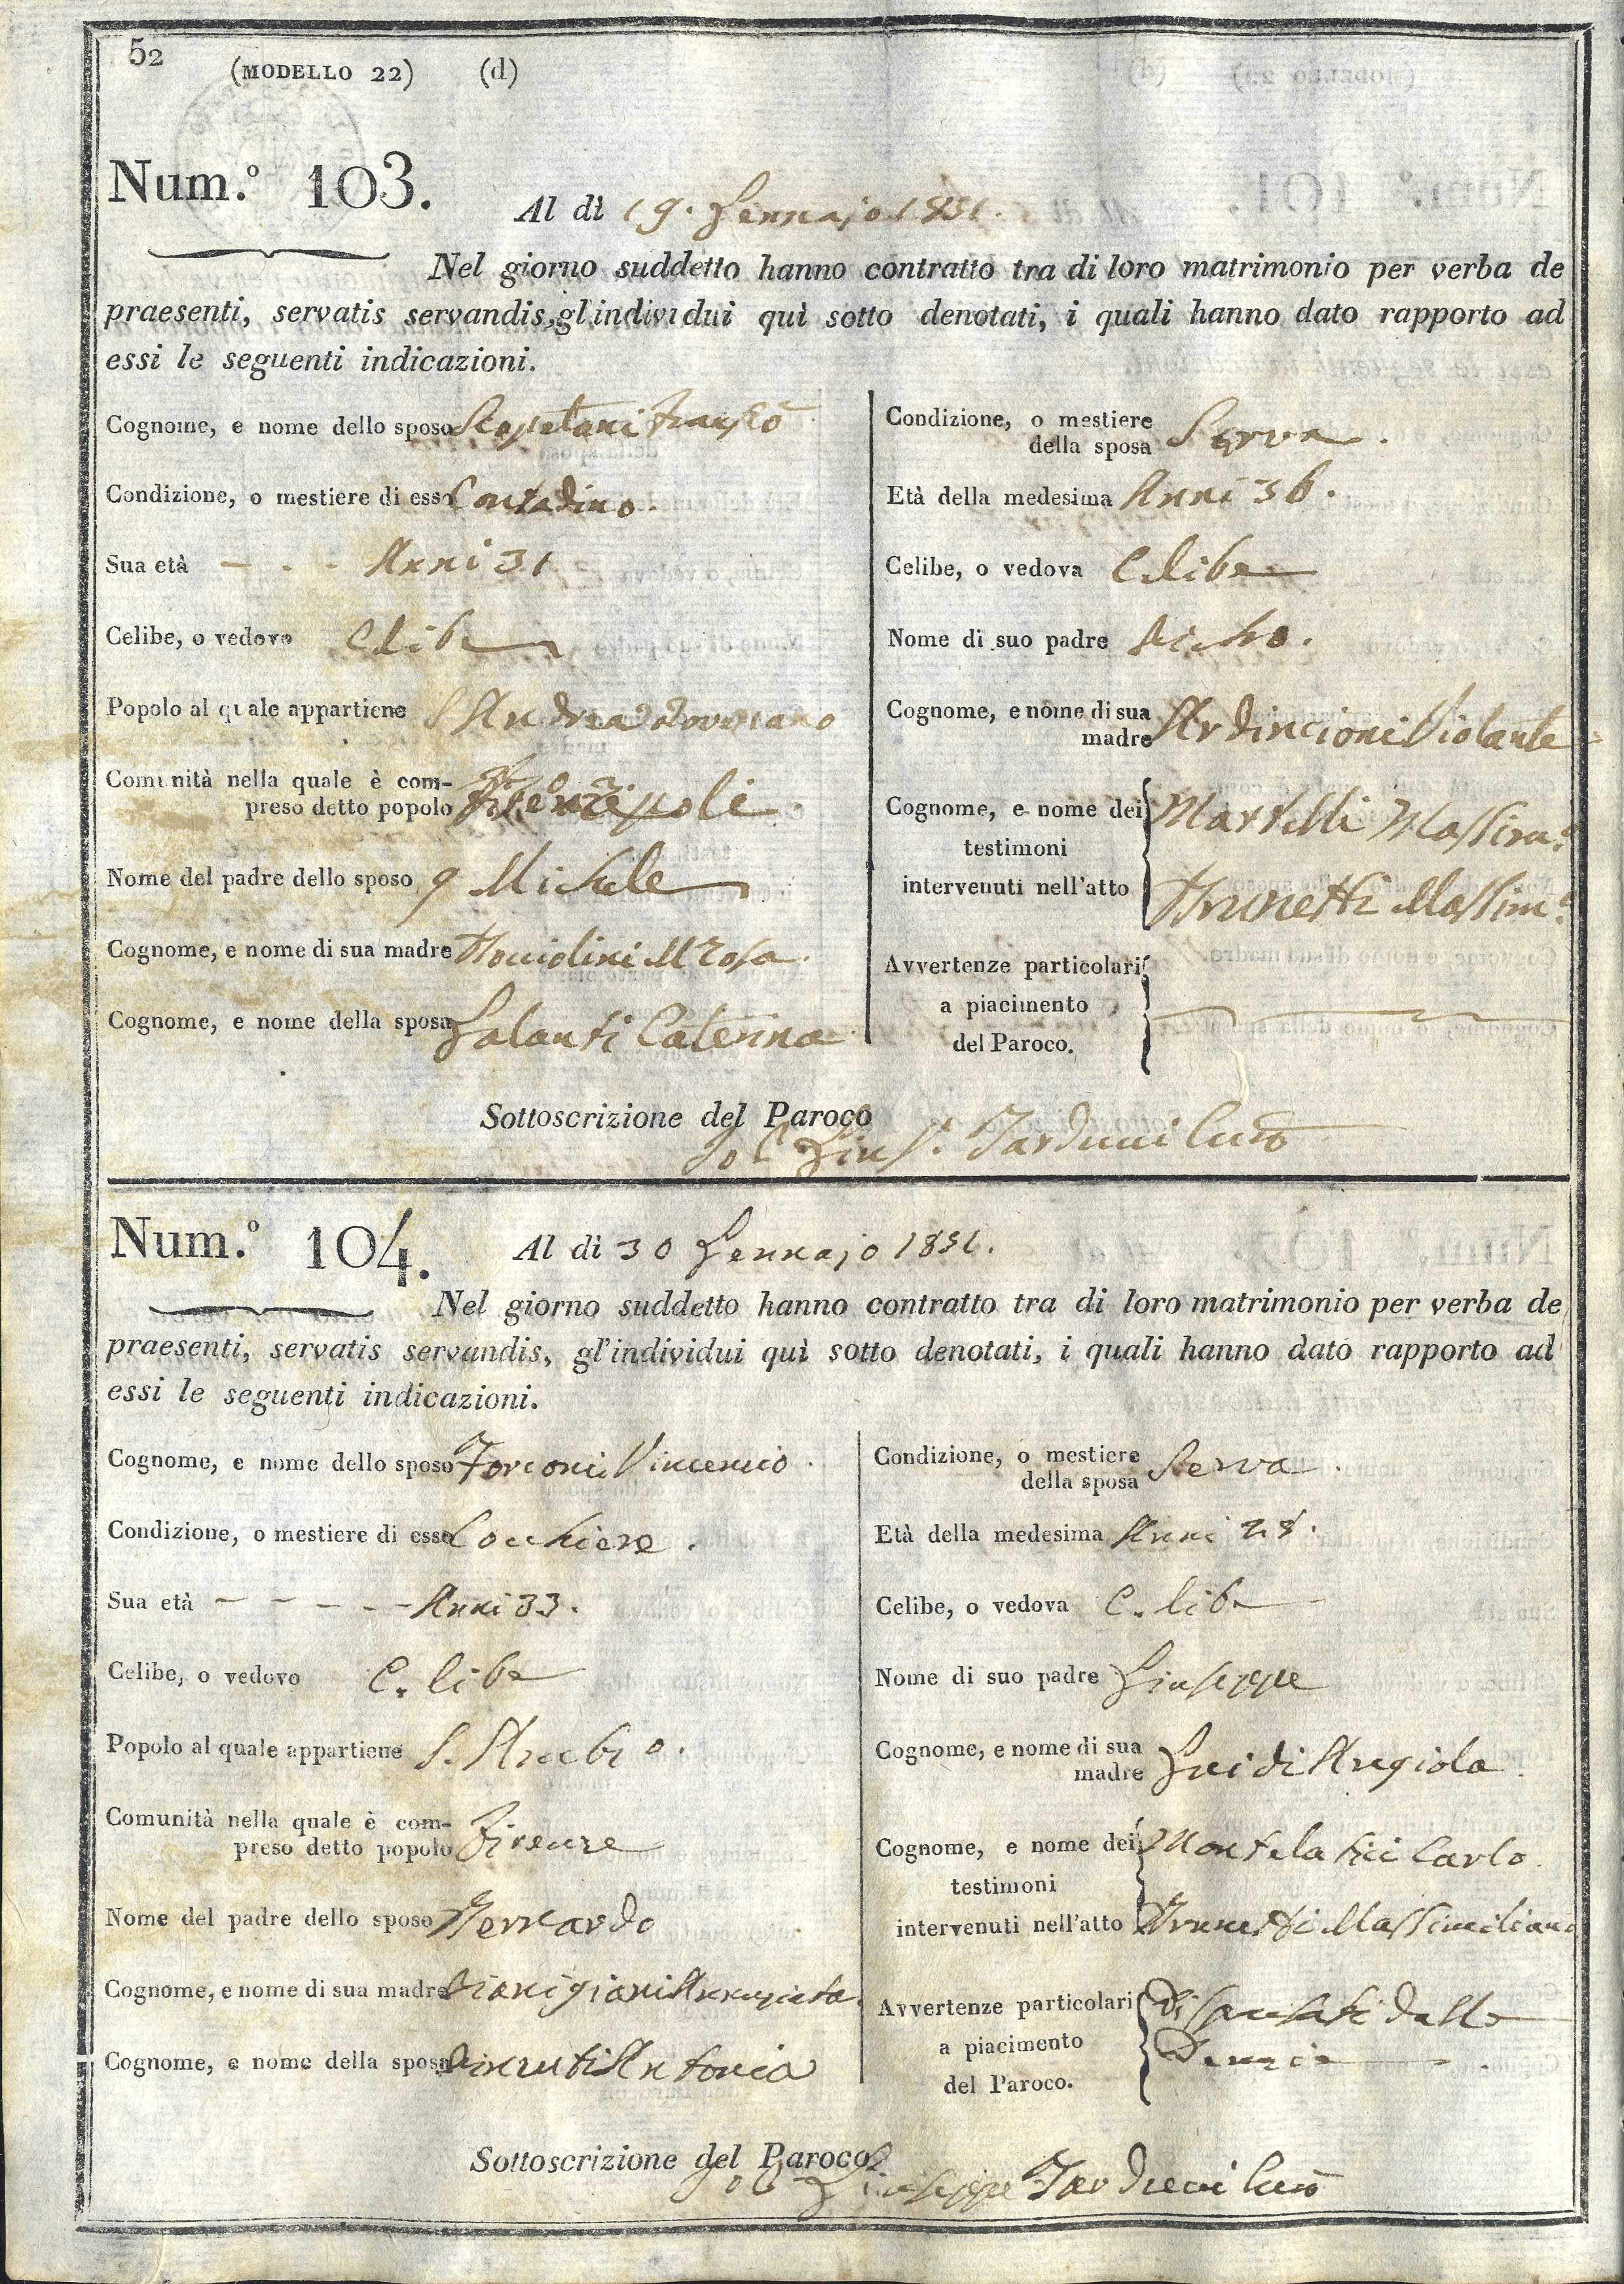 52
(MODELLO 22) (d)
Num.º 103.
Al dì 19. Gennajo 1831.
Nel giorno suddetto hanno contratto tra di loro matrimonio per verba de
praesenti, servatis servandis, gl'individui quì sotto denotati, i quali hanno dato rapporto ad
essi le seguenti indicazioni.
Cognome, e nome dello sposo
Condizione, o mestiere di esso Contadino.
Sua età - - - Anni 31
Celibe, o vedovo Celibe
Popolo al quale appartiene S Andrea a Rovezzano
Comunità nella quale è com-
preso detto popolo
Nome del padre dello sposo q Michele
Cognome, e nome di sua madre M Rosa.
Cognome, e nome della sposa Galanti Caterina
Condizione, o mestiere
della sposa Serva.
Età della medesima Anni 36.
Celibe, o vedova Celibe
Nome di suo padre
Cognome, e nome di sua
madre Ardincioni Violante
Cognome, e nome dei Martelli Massim.º
testimoni
intervenuti nell'atto Brunetti Massim.º
Avvertenze particolari
a piacimento
del Paroco.
Sottoscrizione del Paroco
Io C Gius. Tarducci Curõ
Num.º 104.
Al dì 30 Gennajo 1831.
Nel giorno suddetto hanno contratto tra di loro matrimonio per verba de
praesenti, servatis servandis, gl'individui quì sotto denotati, i quali hanno dato rapporto ad
essi le seguenti indicazioni.
Cognome, e nome dello sposo Forconi Vincenzio.
Condizione, o mestiere di esso Cocchiere.
Sua età - - - - - Anni 33.
Celibe, o vedovo Celibe
Popolo al quale appartiene S. Ambro.
Comunità nella quale è com-
preso detto popolo Firenze
Nome del padre dello sposo Bernardo
Cognome, e nome di sua madre Annunziata
Cognome, e nome della sposa Antonia
Condizione, o mestiere
della sposa Serva.
Età della medesima Anni 28.
Celibe, o vedova Celibe
Nome di suo padre Giuseppe
Cognome, e nome di sua
madre Guidi Angiola
Cognome, e nome dei Montelatici Carlo.
testimoni
intervenuti nell'atto Brunetti Massimiliano
Avvertenze particolari Dispensati dalle
a piacimento Denunzie
del Paroco.
Sottoscrizione del Paroco
Io C Giuseppe Tarducci Curõ